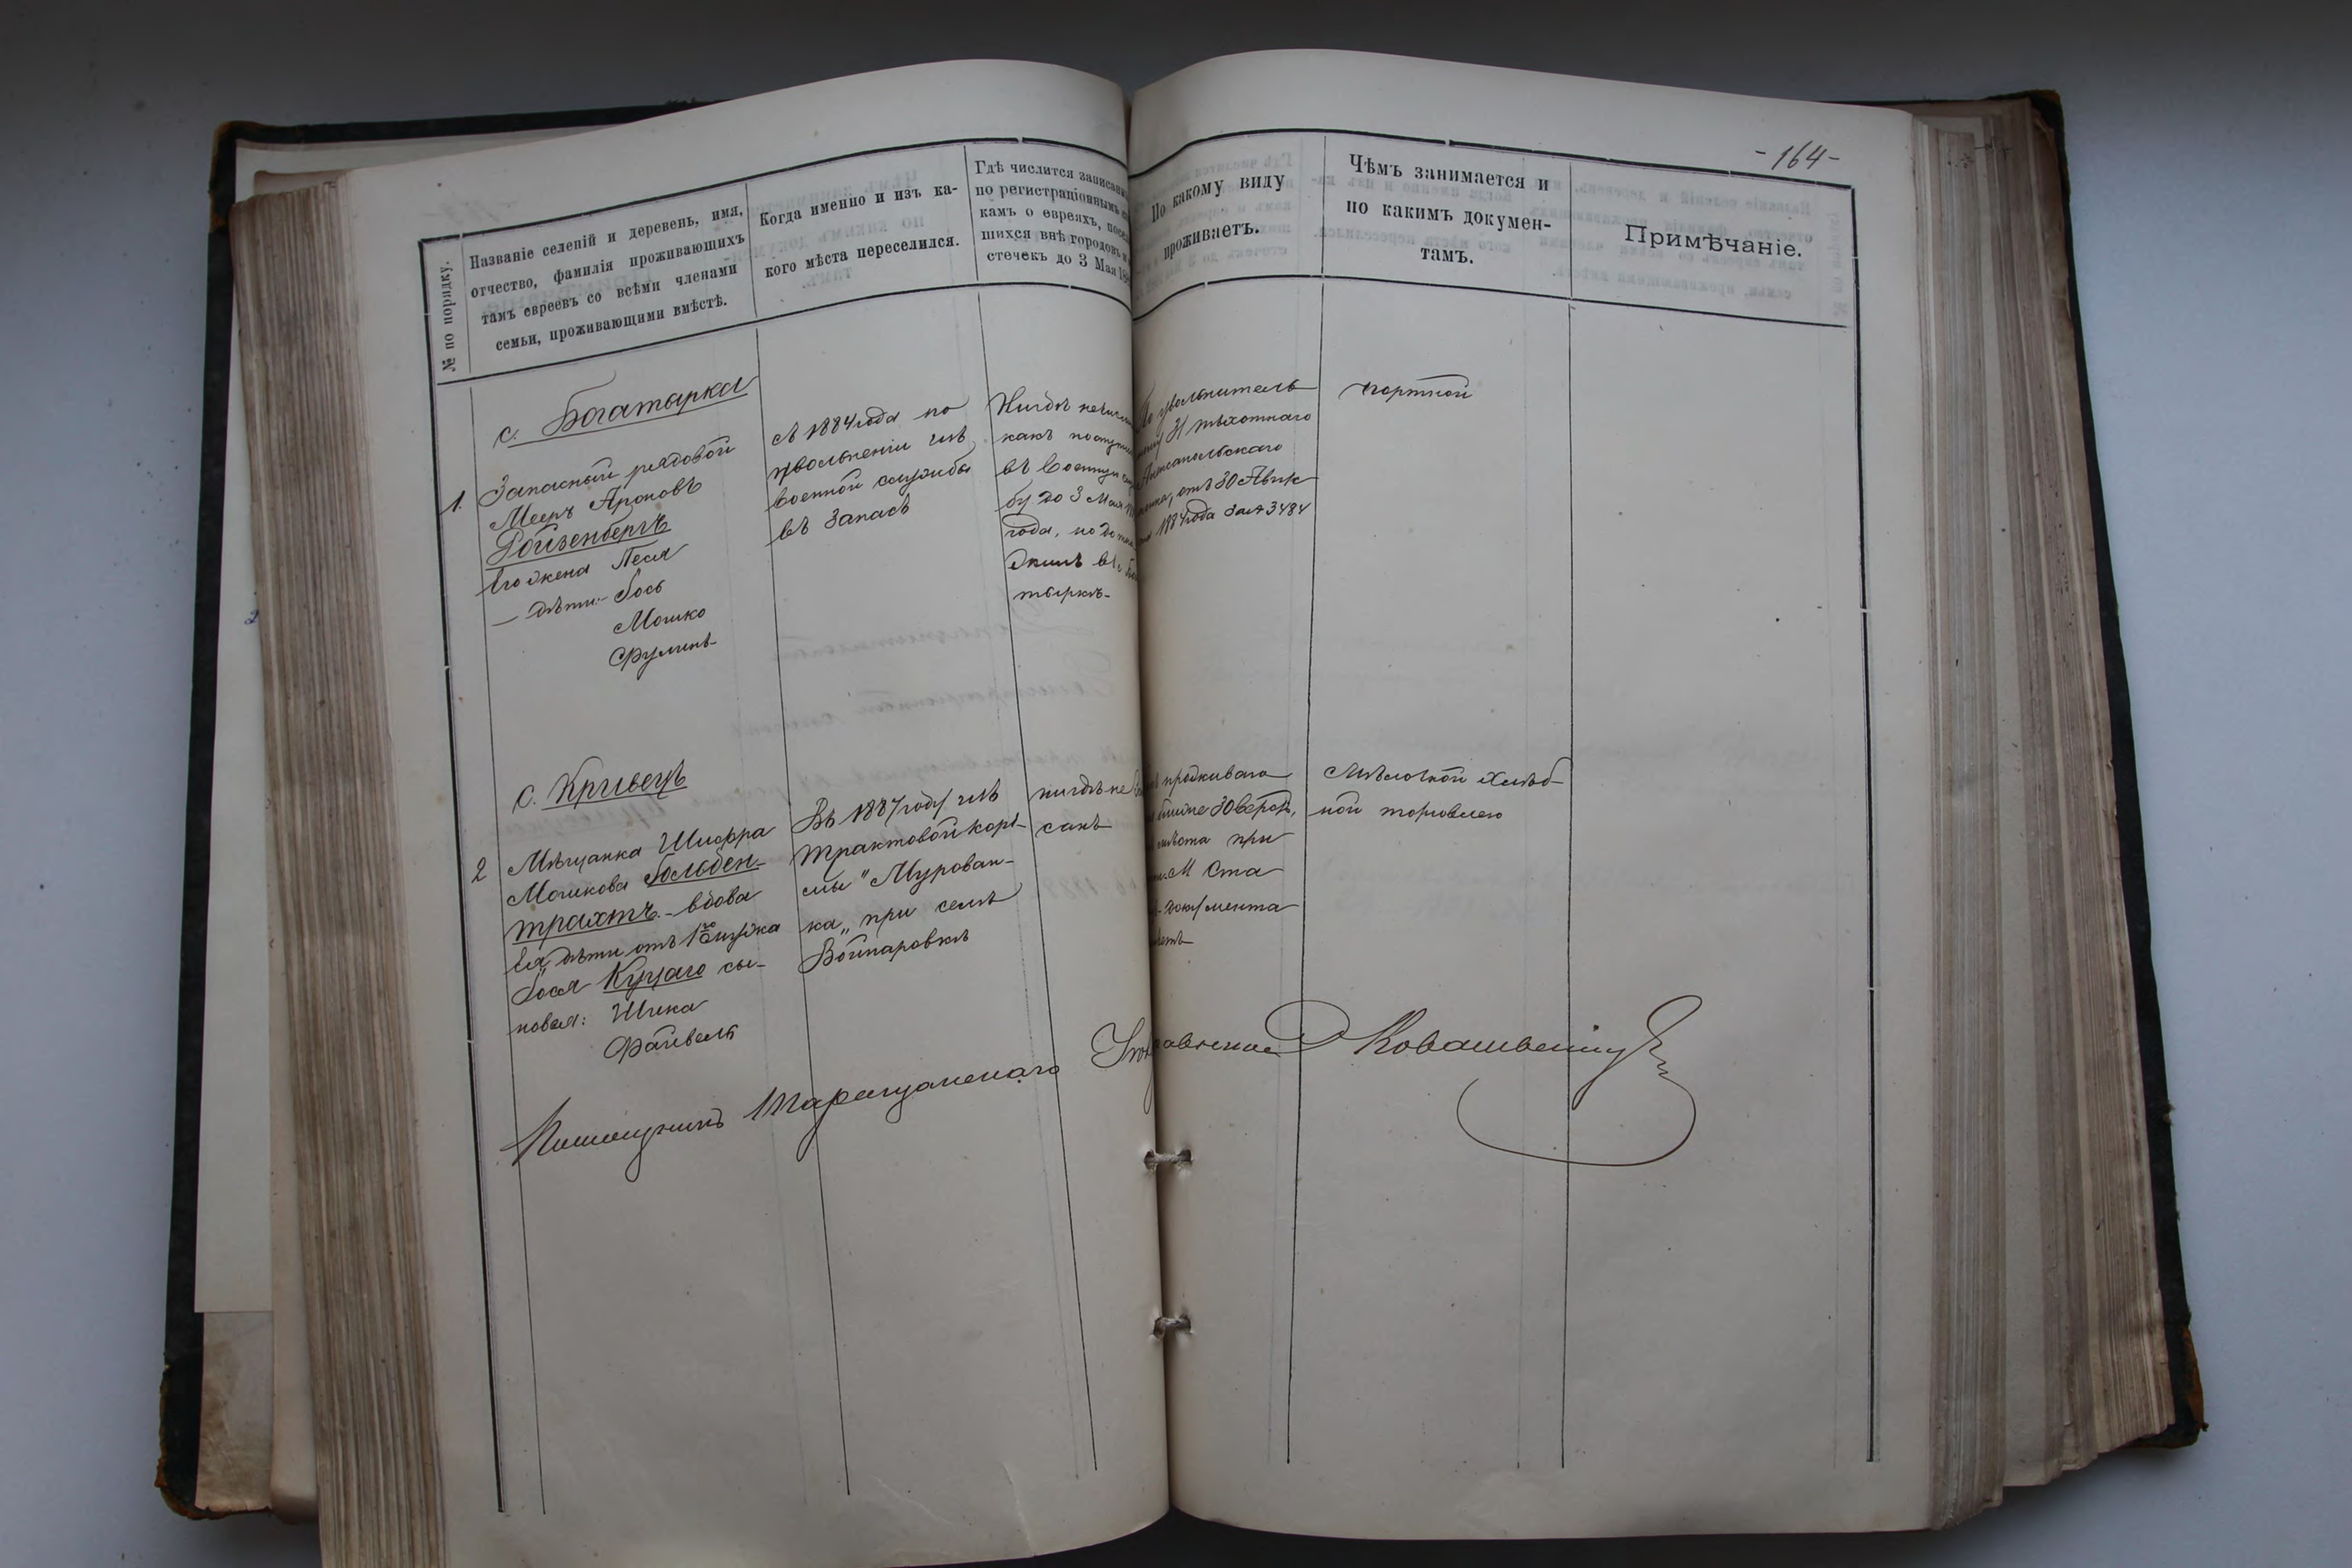 -164-
№ по порядку.
Названіе селеній и деревень, имя,
отчество, фамилія проживающихъ
тамъ евреевъ со всѣми членами
семьи, проживающими вмѣстѣ.
Когда именно и изъ ка-
кого мѣста переселился.
Гдѣ числится
по регистраціоннымъ
камъ о евреяхъ,
шихся внѣ городовъ
стечекъ до 3 Мая
По какому виду
проживаетъ.
Чѣмъ занимается и
по какимъ докумен-
тамъ.
Примѣчаніе.
с. Богатырка
1. Запасный рядовой
Мееръ Ароновъ
Ройзенбергъ
Его жена Песя
— дѣти:- Бось
Мошко
Фрулимъ
съ 1884 года по
увольненіи изъ
военной службы
въ запасъ
Нигдѣ
какъ
въ военную
бу до 3 Мая
года, но до
жилъ въ с.
тыркѣ-
увольнитель
31 пѣхотнаго
отъ 30
1884 года за № 3484
портной
с. Кривецъ
2 Мѣщанка Шифра
Мошкова Гольден-
трахтъ - вдова
Ея дѣти отъ 1го мужа
Боя Куцаго сы-
новья: Шика
Файвель
Въ 1887 году изъ
трактовой корч-
мы "Мурован-
ка" при селѣ
Войнаровкѣ
нигдѣ не
санъ
проживаго
ближе 30 верстъ,
при
м. Ста
документа
мѣлочной хлѣб-
ной торговлею
Помощникъ Таращанскаго
Ковалевскій